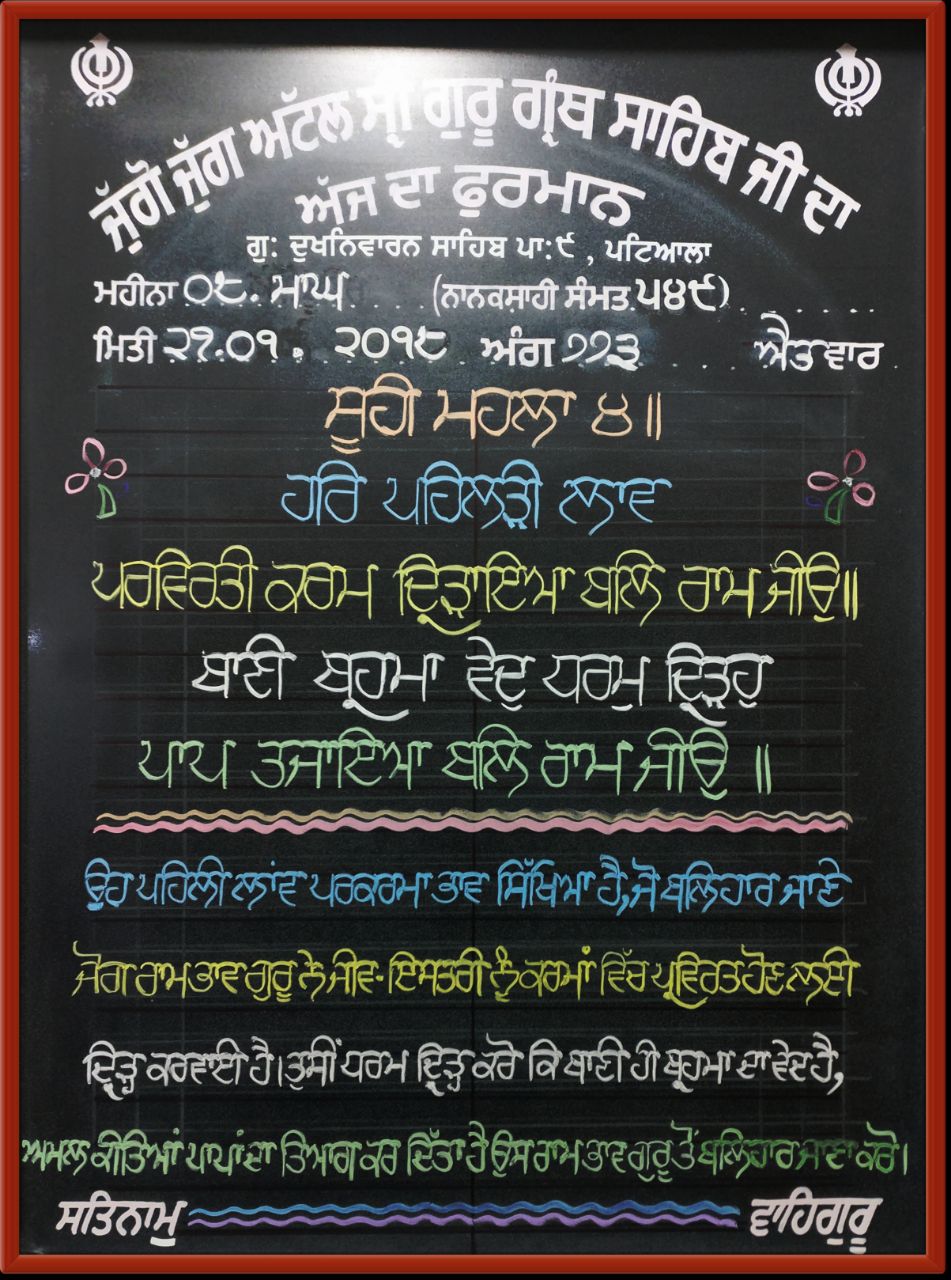 ਜੁੱਗੋ ਜੁੱਗ ਅਟੱਲ ਸ੍ਰੀ ਗੁਰੂ ਗ੍ਰੰਥ ਸਾਹਿਬ ਜੀ ਦਾ
ਅੱਜ ਦਾ ਫੁਰਮਾਨ
ਗੁ: ਦੁਖਨਿਵਾਰਨ ਸਾਹਿਬ ਪਾ:੯ , ਪਟਿਆਲਾ
ਮਹੀਨਾ ੦੮. ਮਾਘ (ਨਾਨਕਸ਼ਾਹੀ ਸੰਮਤ ੫੪੯)
ਮਿਤੀ ੨੧.੦੧. ੨੦੧੮ ਅੰਗ ੭੭੩ ਐਤਵਾਰ
ਸੂਹੀ ਮਹਲਾ ੪॥
ਹਰਿ ਪਹਿਲੜੀ ਲਾਵ
ਪਰਵਿਰਤੀ ਕਰਮ ਦ੍ਰਿੜਾਇਆ ਬਲਿ ਰਾਮ ਜੀਉ॥
ਬਾਣੀ ਬ੍ਰਹਮਾ ਵੇਦੁ ਧਰਮੁ ਦ੍ਰਿੜਹੁ
ਪਾਪ ਤਜਾਇਆ ਬਲਿ ਰਾਮ ਜੀਉ ॥
ਉਹ ਪਹਿਲੀ ਲਾਂਵ ਪਰਕਰਮਾ ਭਾਵ ਸਿੱਖਿਆ ਹੈ, ਜੋ ਬਲਿਹਾਰ ਜਾਣੇ
ਜੋਗ ਰਾਮ ਭਾਵ ਗੁਰੂ ਨੇ ਜੀਵ-ਇਸਤਰੀ ਨੂੰ ਕਰਮਾਂ ਵਿੱਚ ਪ੍ਰਵਿਰਤ ਹੋਣ ਲਈ
ਦ੍ਰਿੜ੍ਹ ਕਰਵਾਈ ਹੈ। ਤੁਸੀਂ ਧਰਮ ਦ੍ਰਿੜ੍ਹ ਕਰੋ ਕਿ ਬਾਣੀ ਹੀ ਬ੍ਰਹਮਾ ਦਾ ਵੇਦ ਹੈ,
ਅਮਲ ਕੀਤਿਆਂ ਪਾਪਾਂ ਦਾ ਤਿਆਗ ਕਰ ਦਿੱਤਾ ਹੈ ਉਸ ਰਾਮ ਭਾਵ ਗੁਰੂ ਤੋਂ ਬਲਿਹਾਰ ਜਾਵਾ ਕਰੋ।
ਸਤਿਨਾਮੁ ਵਾਹਿਗੁਰੂ